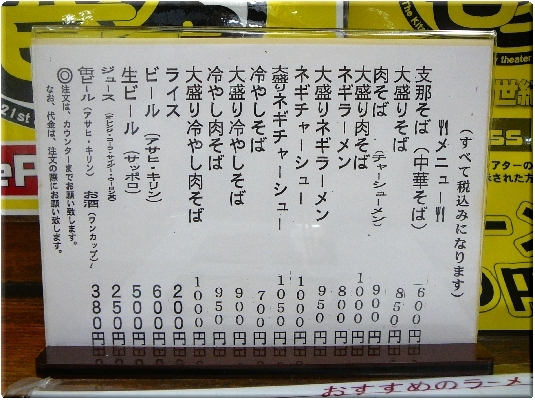 (すべて税込みになります)
メニュー
支那そば(中華そば) 600円
大盛りそば 850円
肉そば(チャーシューメン) 900円
大盛り肉そば 1000円
ネギラーメン 800円
大盛りネギラーメン 950円
ネギチャーシュー 1000円
大盛りネギチャーシュー 1050円
冷やしそば 700円
大盛り冷やしそば 900円
冷やし肉そば 950円
大盛り冷やし肉そば 1000円
ライス 200円
ビール(アサヒ・キリン) 600円
生ビール(サッポロ) 500円
ジュース 250円
缶ビール(アサヒ・キリン) お酒(ワンカップ) 380円
◎注文は、カウンターまでお願い致します。
なお、代金は、注文の際にお願い致します。
おすすめのラーメ
21st
The Kit
theater
世紀